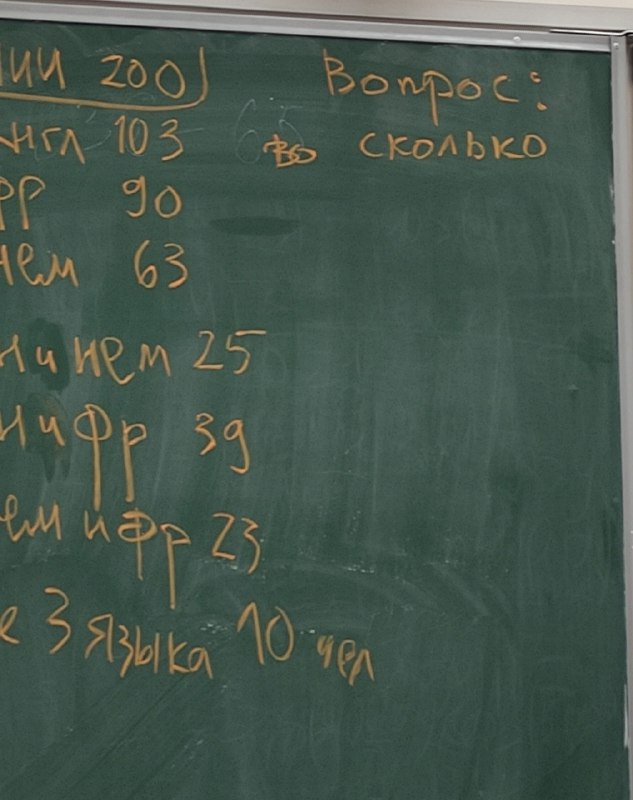 ции 200
англ 103
фр 90
нем 63
н и нем 25
н и фр 39
ем и фр 23
е 3 языка 10 чел
Вопрос:
сколько